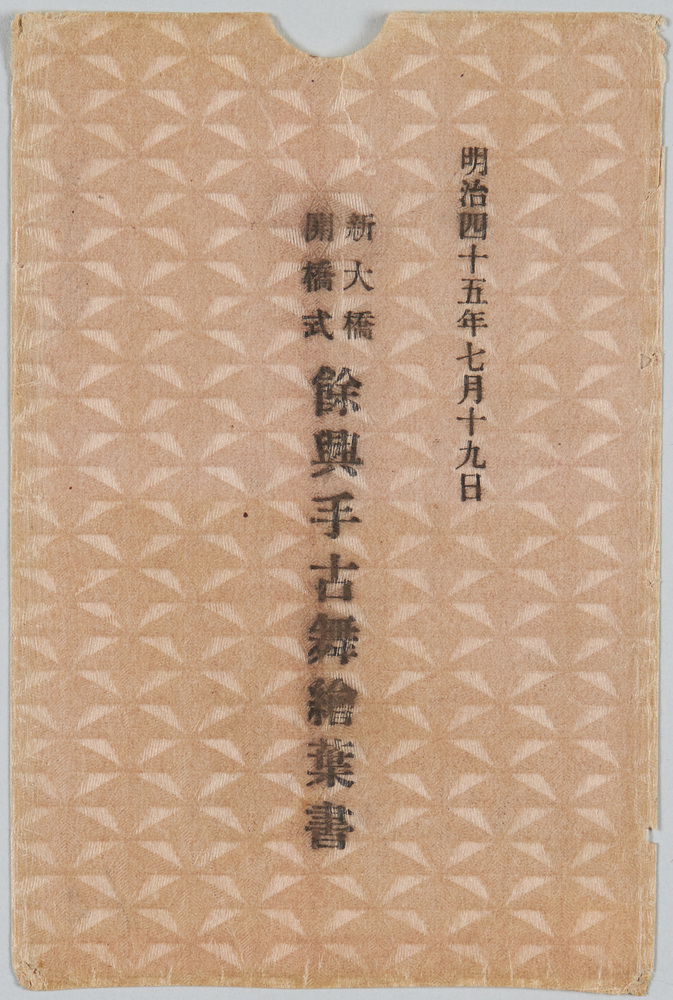 明治四十五年七月十九日
新大橋
開橋式
餘興手古舞繪葉書